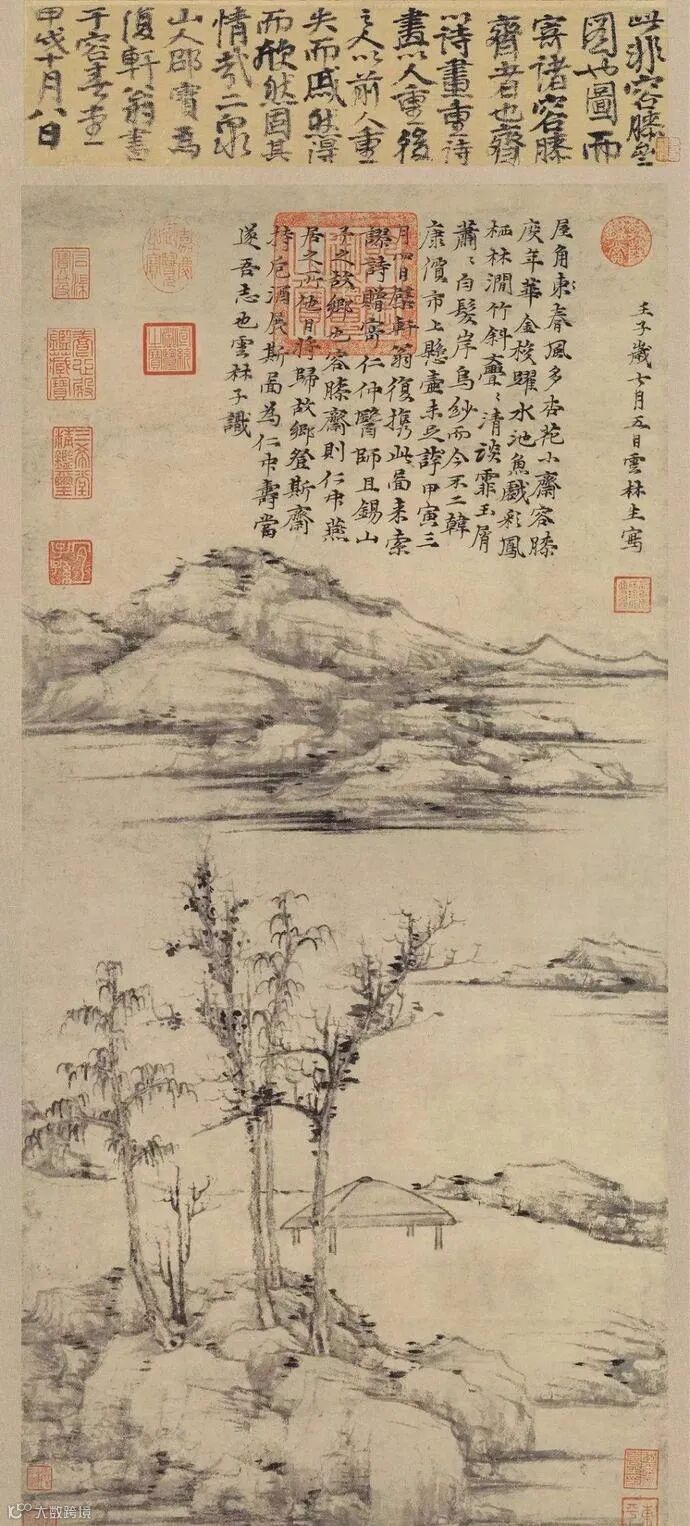 此非容膝齋
圖也圖而
寄諸容膝
齋者也齋
以詩畫重詩
畫以人重後
之人以前人重
失而戚然得
而欣然固其
情哉二泉
山人邵寶為
復軒翁書
于容春堂
甲戌十月八日
壬子歲七月五日雲林生寫
屋角東春風多杏花小齋容膝
度年華金梭躍水池魚戲彩鳳
栖林澗竹斜亹亹清談霏玉屑
蕭蕭白髮岸烏紗而今不二韓
康價市上懸壺未足誇甲寅三
月四日檗軒翁復携此圖來索
謬詩贈寄仁仲醫師且錫山
予之故鄉也容膝齋則仁仲燕
居之所他日將歸故鄉登斯齋
持卮酒展斯圖為仁仲壽當
遂吾志也雲林子識
大数跨境